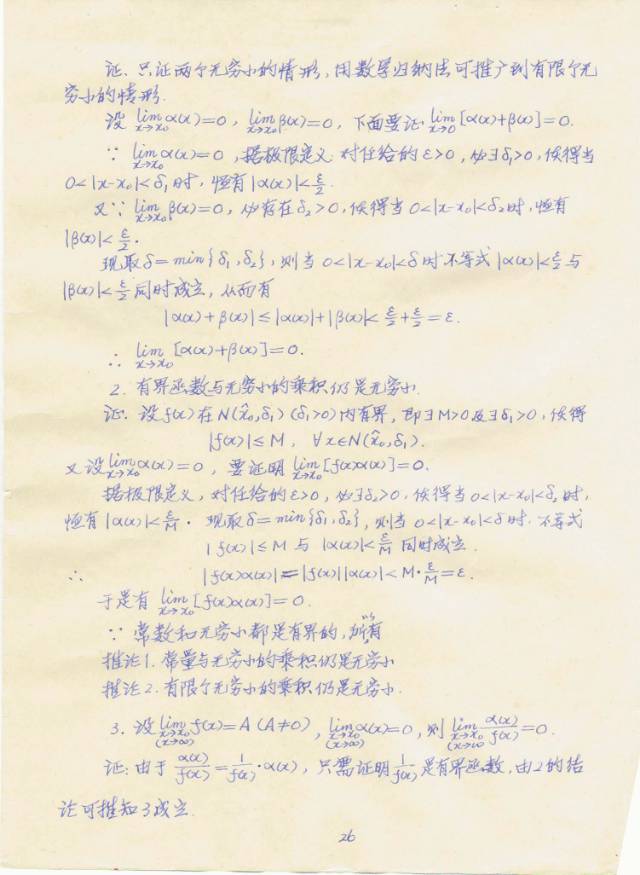 证.只证两个无穷小的情形,用数学归纳法可推广到有限个无
穷小的情形.
设 lim_{x→x₀} α(x)=0, lim_{x→x₀} β(x)=0, 下面要证 lim_{x→0} [α(x)+β(x)]=0.
∵ lim_{x→x₀} α(x)=0, 据极限定义 对任给的 ε>0, 必∃δ₁>0, 使得当
0<|x-x₀|<δ₁时, 恒有 |α(x)|<ε/2.
又∵ lim_{x→x₀} β(x)=0, 必存在δ₂>0, 使得当 0<|x-x₀|<δ₂时, 恒有
|β(x)|<ε/2.
现取δ=min{δ₁,δ₂}, 则当 0<|x-x₀|<δ时 不等式 |α(x)|<ε/2 与
|β(x)|<ε/2 同时成立, 从而有
|α(x)+β(x)|≤|α(x)|+|β(x)|<ε/2+ε/2=ε.
∴ lim_{x→x₀} [α(x)+β(x)]=0.
2. 有界函数与无穷小的乘积仍是无穷小.
证. 设f(x)在N(x̂₀,δ₁)(δ₁>0)内有界, 即∃M>0及∃δ₁>0, 使得
|f(x)|≤M, ∀x∈N(x̂₀,δ₁).
又设 lim_{x→x₀} α(x)=0, 要证明 lim_{x→x₀} [f(x)α(x)]=0.
据极限定义, 对任给的ε>0, 必∃δ₂>0, 使得当 0<|x-x₀|<δ₂时,
恒有 |α(x)|<ε/M. 现取δ=min{δ₁,δ₂}, 则当 0<|x-x₀|<δ时. 不等式
|f(x)|≤M 与 |α(x)|<ε/M 同时成立.
∴ |f(x)α(x)|=|f(x)||α(x)|<M·ε/M=ε.
于是有 lim_{x→x₀} [f(x)α(x)]=0.
∵ 常数和无穷小都是有界的, 所以有
推论1. 常量与无穷小的乘积仍是无穷小
推论2. 有限个无穷小的乘积仍是无穷小.
3. 设 lim_{x→x₀ (x→∞)} f(x)=A (A≠0), lim_{x→x₀ (x→∞)} α(x)=0, 则 lim_{x→x₀ (x→∞} α(x)/f(x)=0.
证: 由于 α(x)/f(x)=1/f(x)·α(x), 只需证明 1/f(x) 是有界函数, 由2的结
论可推知3成立.
26